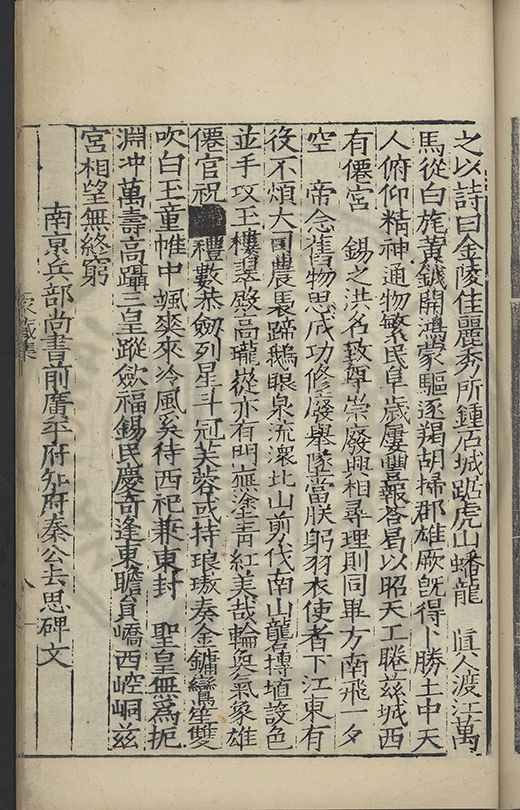 之以詩曰金陵佳麗秀所鍾石城踞虎山蟠龍 眞人渡江萬
馬從白旄黃鉞開鴻蒙驅逐羯胡掃郡雄厥旣得卜勝土中天
人俯仰精神通物繁民阜歲屢豐報答曷以昭天工睠茲城西
有僊宮 錫之洪名致尊崇廢興相尋理則同畢方南飛一夕
空 帝念舊物思成功修廢舉墜當朕躬羽衣使者下江東有
役不煩大司農褭蹄鵝眼泉流濴北山剪伐南山礱摶埴設色
並手攻玉樓翠殿高巃嵸亦有門廡塗青紅美哉輪奐氣象雄
僊官祝 禮數恭劒列星斗冠芙蓉或持琅璈奏金鏞鸞笙雙
吹白玉童帷中颯爽來冷風奚待西祀兼東封 聖皇無爲扼
淵冲萬壽高躡三皇蹤斂福錫民慶竒逢東瞻員嶠西崆峒茲
宮相望無終窮
南京兵部尚書前廣平府知府秦公去思碑文
家藏集
八